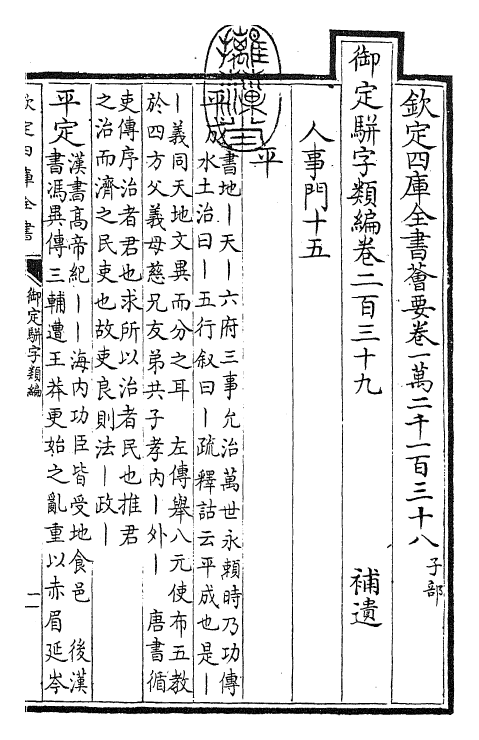 欽定四庫全書薈要卷一萬二千一百三十八 子部
御定駢字類編卷二百三十九 補遺
人事門十五
平
平成 書地丨天丨六府三事允治萬世永賴時乃功傳
水土治曰丨五行叙曰丨疏釋詁云平成也是丨
丨義同天地文異而分之耳 左傳舉八元使布五教
於四方父義母慈兄友弟共子孝内丨外丨 唐書循
吏傳序治者君也求所以治者民也推君
之治而濟之民吏也故吏良則法丨政丨
平定 漢書高帝紀丨丨海内功臣皆受地食邑 後漢
書馮異傳三輔遭王莽更始之亂重以赤眉延岑
欽定四庫全書
御定駢字類編
一